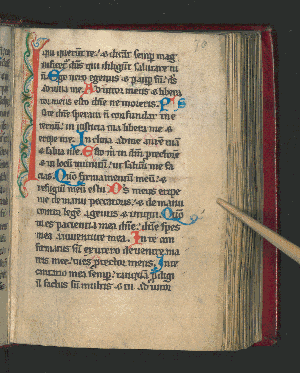 qui querunt te. & dicant semp mag
nificet dns qui diligunt salutare tu
um. Ego vero egenus & paup sum. ds
adiuva me. Adiutor meus & libera
tor meus esto dne ne moreris.
te dne speravi n confundar in e
ternum. in justicia tua libera me &
eripe me. Inclina ad me aurem tua
& salva me. Esto m in dm ptectore
& in locu munitu. ut salvum me fa
cias. Quo firmamentu meu. &
refugium meu es tu. Ds meus eripe
me de manu peccatoris. & de manu
contra lege agentis & iniqui. Quo
tu es paciencia mea dne. dne spes
mea a iuventute mea. In te con
firmatus sum ex utero de ventre ma
tris mee. tu es ptector meus. In te
cantatio mea semp. tanqua pdigi
u factus sum multis. & tu adiutor